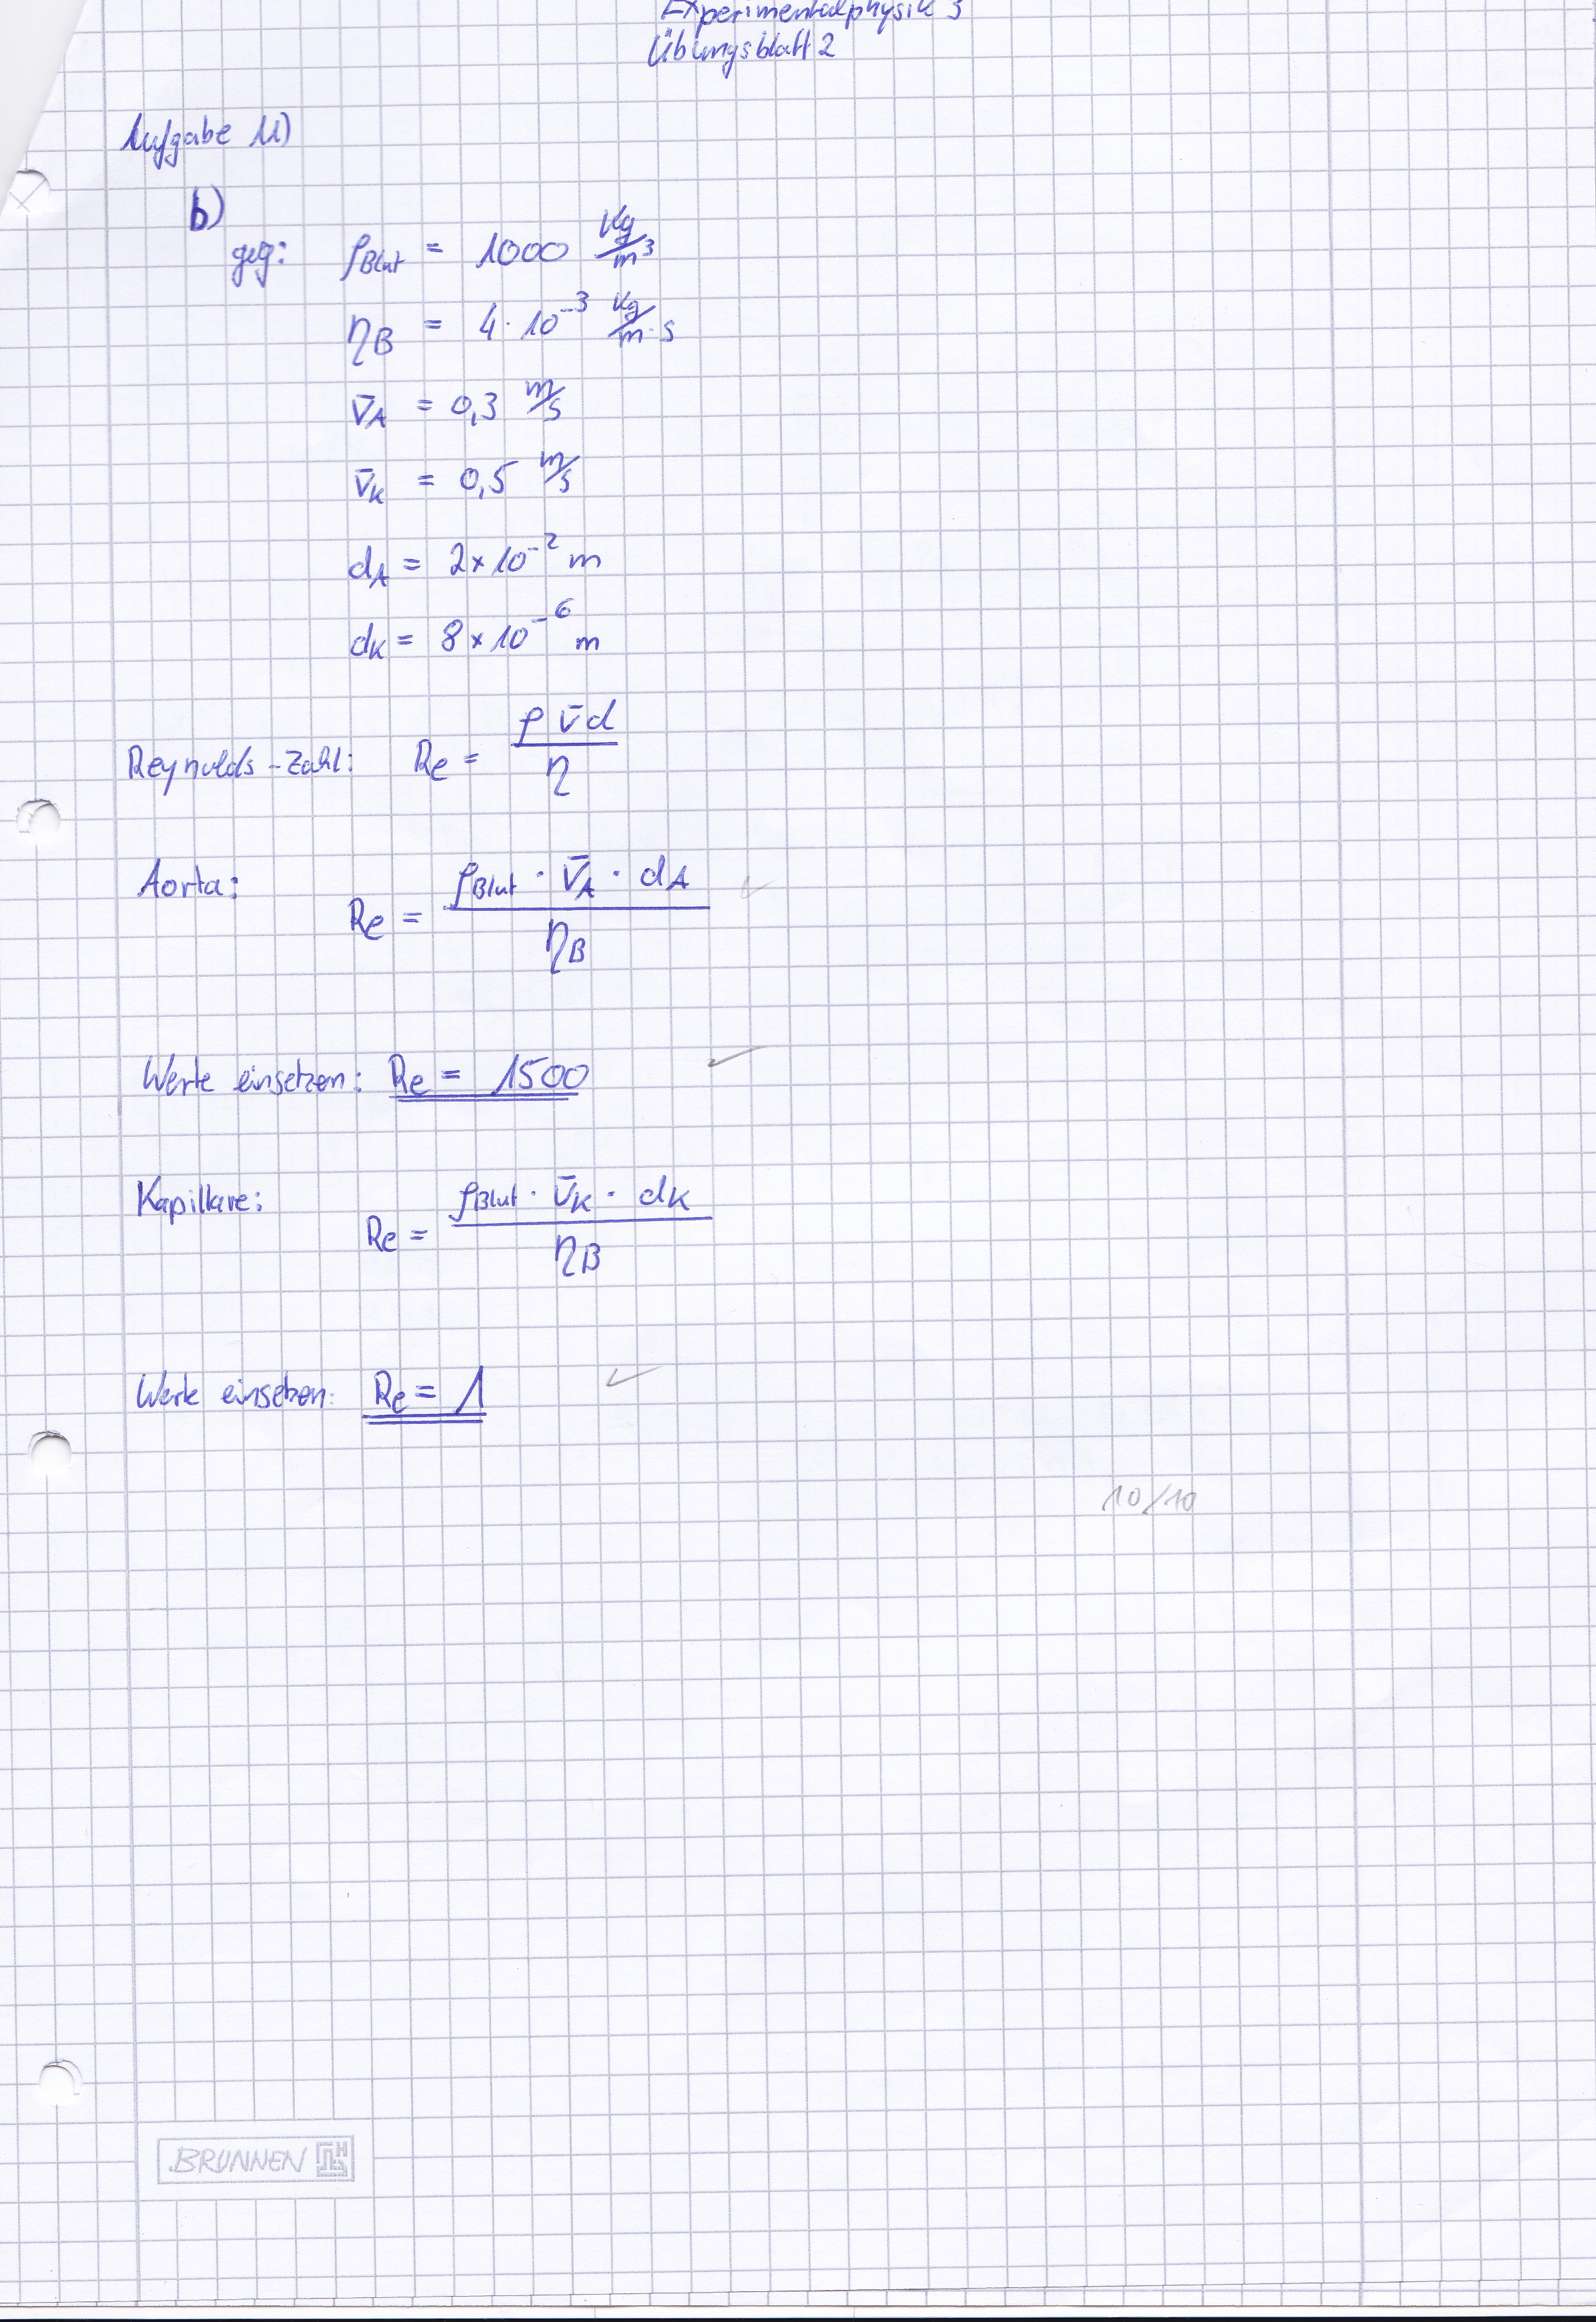 Experimentalphysik 3
Übungsblatt 2
Aufgabe 11)
b)
geg: ρBlut = 1000 kg/m³
ηB = 4 · 10⁻³ kg/m·s
v̄A = 0,3 m/s
v̄K = 0,5 m/s
dA = 2 × 10⁻² m
dK = 8 × 10⁻⁶ m
Reynolds-Zahl: Re = ρ v̄ d / η
Aorta: Re = ρBlut · v̄A · dA / ηB ✓
Werte einsetzen: Re = 1500 ✓
Kapillare: Re = ρBlut · v̄K · dK / ηB
Werte einsetzen: Re = 1 ✓
10/10
BRUNNEN